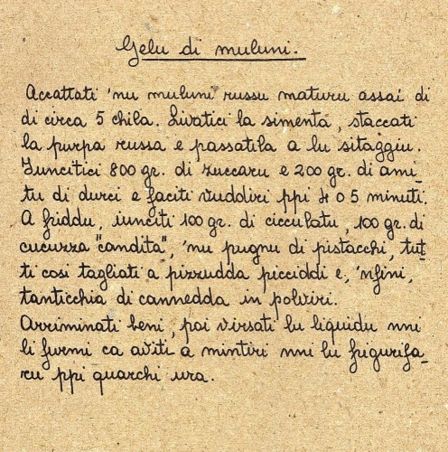 Gelu di muluni.
Accattati 'nu muluni russu maturu assai di
di circa 5 chila. Livatici la simenta, staccati
la purpa russa e passatila a lu sitaggiu.
Iuncitici 800 gr. di zuccaru e 200 gr. di ami-
tu di durci e faciti vuddiri ppi 4 o 5 minuti.
A friddu, iunciti 100 gr. di cicculatu, 100 gr. di
cucuzza "candita", 'nu pugnu di pistacchi, tut-
ti cosi tagliati a pizzudda picciddi e, 'nfini,
tanticchia di cannedda in polviri.
Arriminati beni, poi virsati lu liquidu nni
li furmi ca aviti a mintiri nni lu frigurifa-
ru ppi quarchi ura.